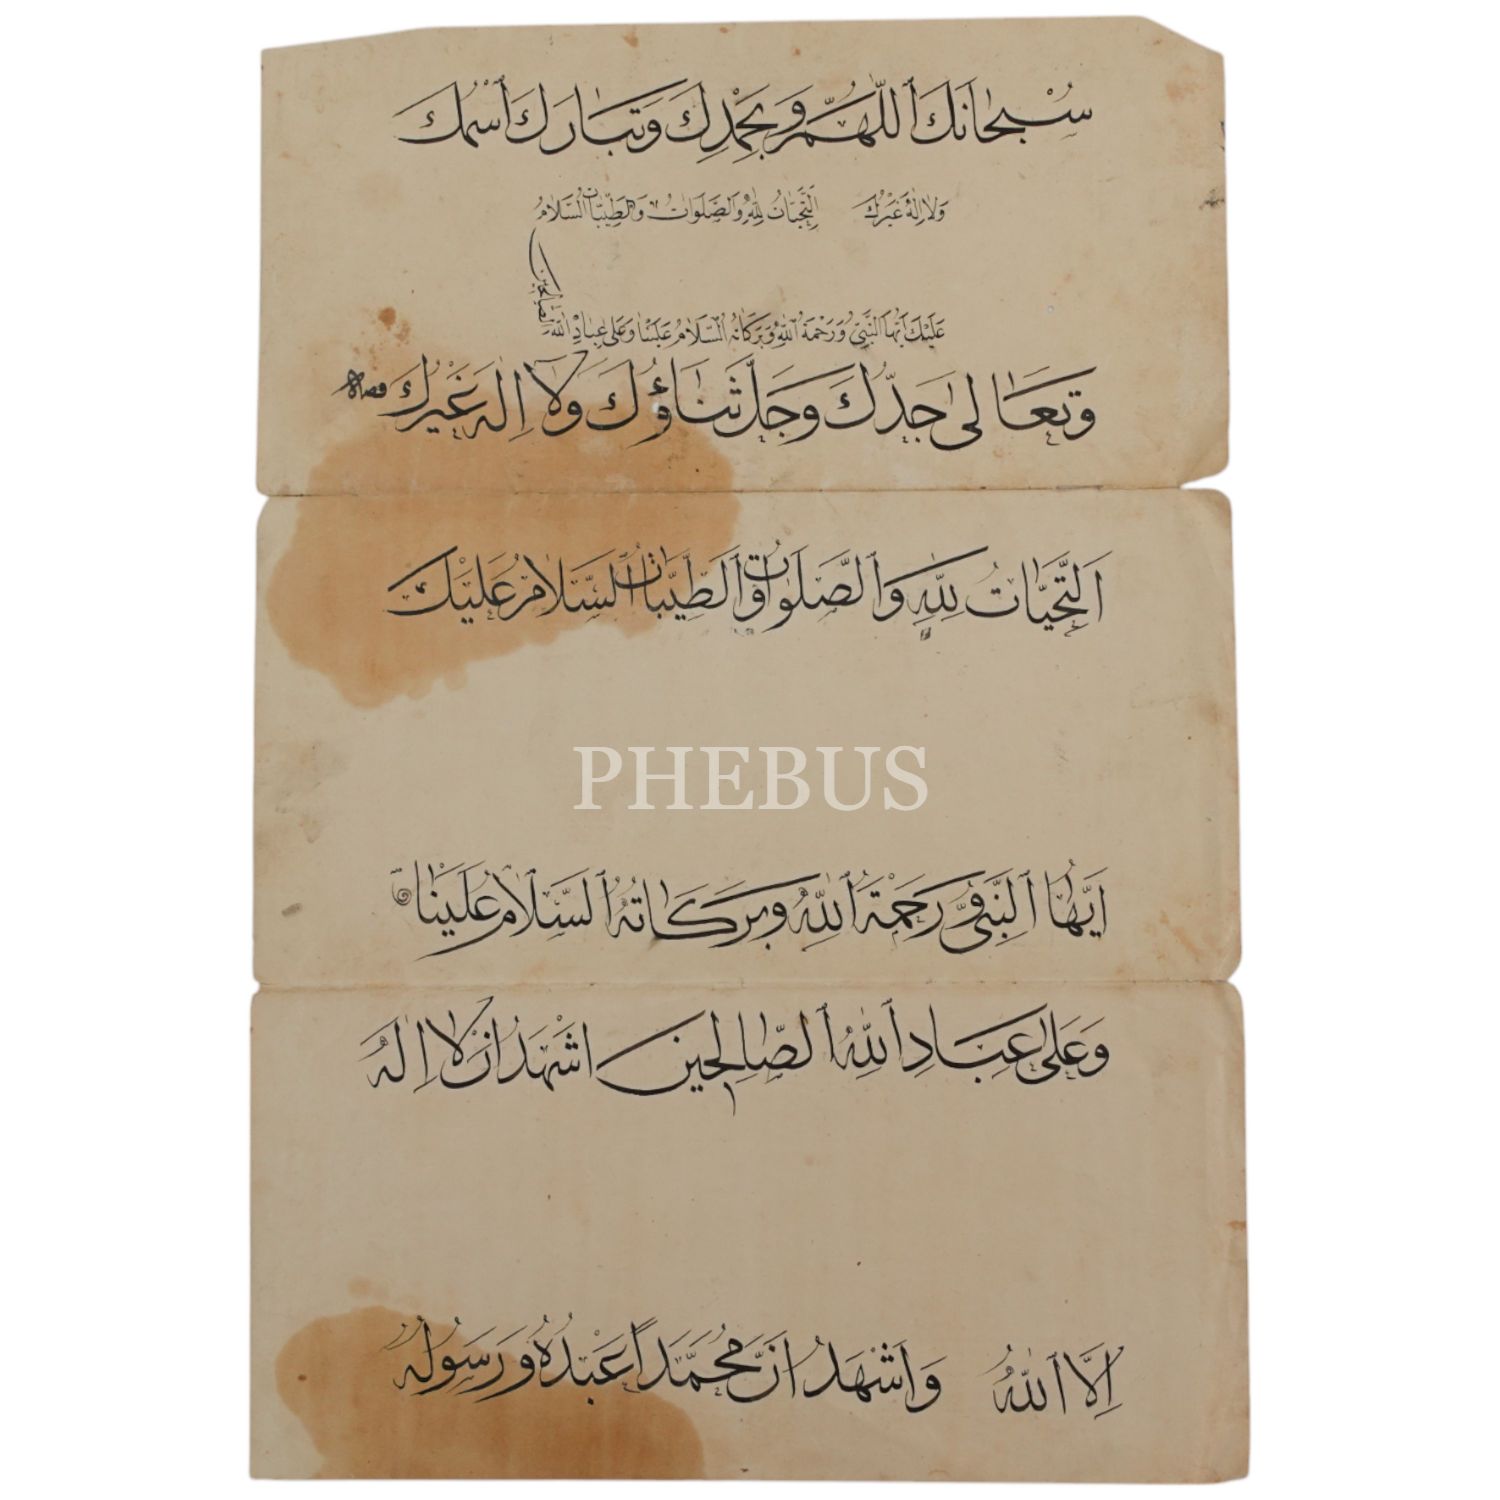 سُبْحَانَكَ ٱللّٰهُمَّ وَبِحَمْدِكَ وَتَبَارَكَ ٱسْمُكَ
وَلَا اِلٰهَ غَيْرُكَ اَلتَّحِيَّاتُ لِلّٰهِ وَالصَّلَوَاتُ وَالطَّيِّبَاتُ اَلسَّلَامُ
عَلَيْكَ اَيُّهَا النَّبِيُّ وَرَحْمَةُ اللّٰهِ وَبَرَكَاتُهُ اَلسَّلَامُ عَلَيْنَا وَعَلٰى عِبَادِ اللّٰهِ الصالحين
وَتَعَالٰى جَدُّكَ وَجَلَّ ثَنَاؤُكَ وَلَا اِلٰهَ غَيْرُكَ
اَلتَّحِيَّاتُ لِلّٰهِ وَٱلصَّلَوَاتُ وَٱلطَّيِّبَاتُ ٱلسَّلَامُ عَلَيْكَ
PHEBUS
اَيُّهَا ٱلنَّبِيُّ وَرَحْمَةُ ٱللّٰهِ وَبَرَكَاتُهُ ٱلسَّلَامُ عَلَيْنَا
وَعَلٰى عِبَادِ ٱللّٰهِ ٱلصَّالِحِينَ اَشْهَدُ اَنْ لَا اِلٰهَ
اِلَّا ٱللّٰهُ وَاَشْهَدُ اَنَّ مُحَمَّدًا عَبْدُهُ وَرَسُولُهُ